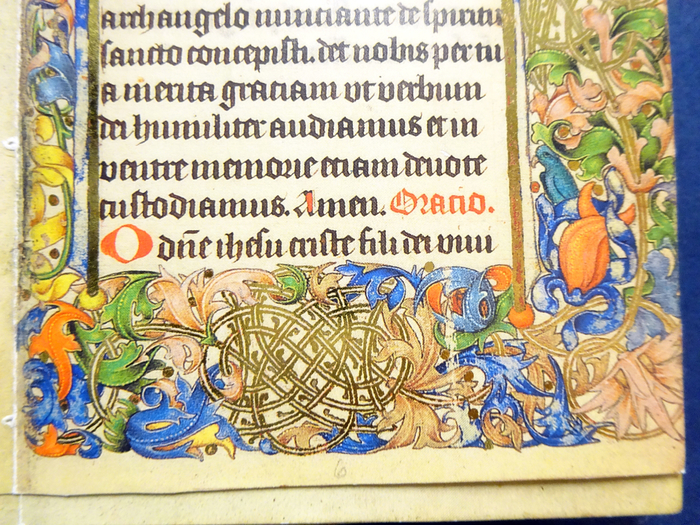 archangelo nunciante de spiritu
sancto concepisti. det nobis per tu
a merita graciam vt verbum
dei humiliter audiamus et in
ventre memorie etiam deuote
custodiamus. Amen. Oratio.
O dn̄e ihesu criste fili dei viui
6